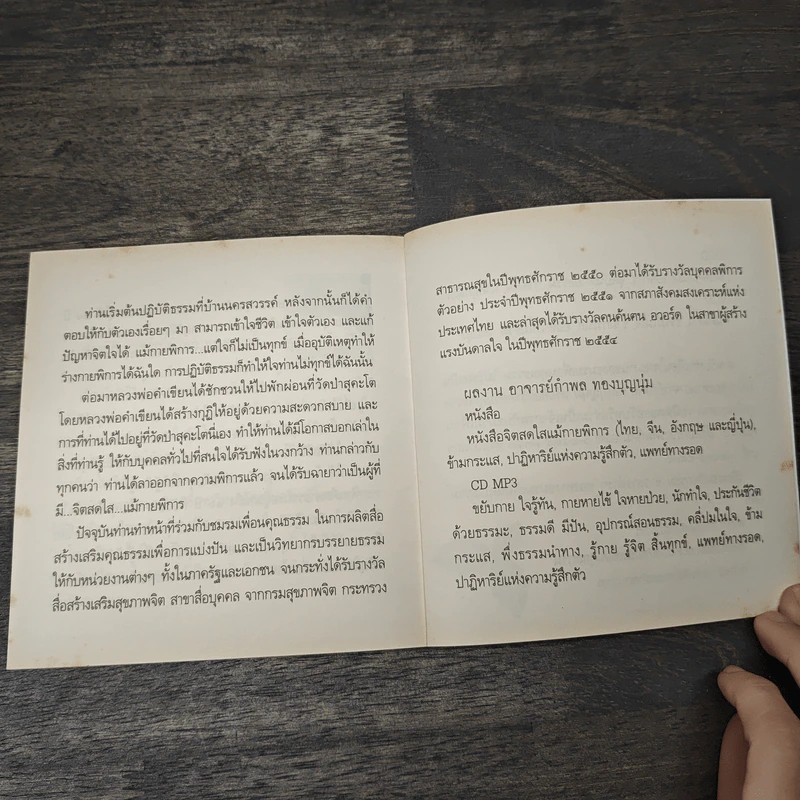 ท่านเริ่มต้นปฏิบัติธรรมที่บ้านนครสวรรค์ หลังจากนั้นก็ได้คำ
ตอบให้กับตัวเองเรื่อยๆ มา สามารถเข้าใจชีวิต เข้าใจตัวเอง และแก้
ปัญหาจิตใจได้ แม้กายพิการ...แต่ใจก็ไม่เป็นทุกข์ เมื่ออุบัติเหตุทำให้
ร่างกายพิการได้ฉันใด การปฏิบัติธรรมก็ทำให้ใจท่านไม่ทุกข์ได้ฉันนั้น
ต่อมาหลวงพ่อคำเขียนได้ชักชวนให้ไปพักผ่อนที่วัดป่าสุคะโต
โดยหลวงพ่อคำเขียนได้สร้างกุฏิให้อยู่ด้วยความสะดวกสบาย และ
การที่ท่านได้ไปอยู่ที่วัดป่าสุคะโตนี่เอง ทำให้ท่านได้มีโอกาสบอกเล่าใน
สิ่งที่ท่านรู้ ให้กับบุคคลทั่วไปที่สนใจได้รับฟังในวงกว้าง ท่านกล่าวกับ
ทุกคนว่า ท่านได้ลาออกจากความพิการแล้ว จนได้รับฉายาว่าเป็นผู้ที่
มี...จิตสดใส...แม้กายพิการ
ปัจจุบันท่านทำหน้าที่ร่วมกับชมรมเพื่อนคุณธรรม ในการผลิตสื่อ
สร้างเสริมคุณธรรมเพื่อการแบ่งปัน และเป็นวิทยากรบรรยายธรรม
ให้กับหน่วยงานต่างๆ ทั้งในภาครัฐและเอกชน จนกระทั่งได้รับรางวัล
สื่อสร้างเสริมสุขภาพจิต สาขาสื่อบุคคล จากกรมสุขภาพจิต กระทรวง
สาธารณสุขในปีพุทธศักราช ๒๕๕๐ ต่อมาได้รับรางวัลบุคคลพิการ
ตัวอย่าง ประจำปีพุทธศักราช ๒๕๕๑ จากสภาสังคมสงเคราะห์แห่ง
ประเทศไทย และล่าสุดได้รับรางวัลคนค้นฅน อวอร์ด ในสาขาผู้สร้าง
แรงบันดาลใจ ในปีพุทธศักราช ๒๕๕๔
ผลงาน อาจารย์กำพล ทองบุญนุ่ม
หนังสือ
หนังสือจิตสดใสแม้กายพิการ (ไทย, จีน, อังกฤษ และญี่ปุ่น),
ข้ามกระแส, ปาฏิหาริย์แห่งความรู้สึกตัว, แพทย์ทางรอด
CD MP3
ขยับกาย ใจรู้ทัน, กายหายไข้ ใจหายป่วย, นักทำใจ, ประกันชีวิต
ด้วยธรรมะ, ธรรมดี มีปัน, อุปกรณ์สอนธรรม, คลี่ปมในใจ, ข้าม
กระแส, พึ่งธรรมนำทาง, รู้กาย รู้จิต สิ้นทุกข์, แพทย์ทางรอด,
ปาฏิหาริย์แห่งความรู้สึกตัว